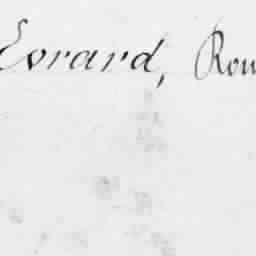 Evrard, Rou